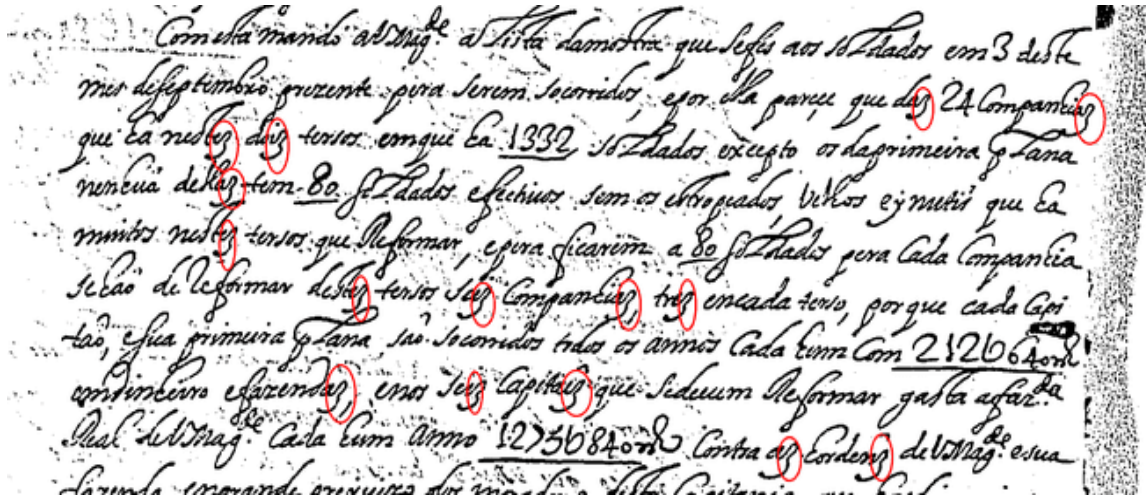 Com esta mando a V Mag.de a lista damostra que sefes aos soldados em 3 deste
mes desseptembro prezente pera serem socorridos, epor ella pareçe que daz 24 Companhiaz
que ha nestez doiz tersos emque ha 1332 soldados excepto os daprimeira plana
nenhuã dellaz tem 80 soldados efectivos sem os estropiados, velhos eynutis que ha
muntos nestez tersos que Reformar, epera ficarem a 80 soldados pera Cada Companhia
sehaõ de Reformar destez tersos seiz Companhiaz, trez encada terso, porque cada Capi
taõ, esua primeira plana, saõ socorridos todos os annos Cada hum Com 212U640 rs
emdinheiro efazendaz, enos seiz Capitaiz que sedeuem Reformar gasta afaz.da
Real de V Mag.de Cada hum anno 1275U840 rs Contra az hordeniz de V Mag.de esua
fazenda, engrande prejuizo dos moradores desta Capitania, que